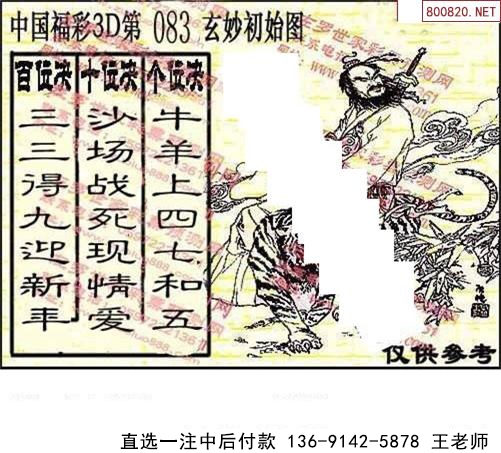 800820.NET
中国福彩3D第 083 玄妙初始图
百位决 十位决 个位决
三三得九迎新年
沙场战死现情爱
牛羊上四七和五
仅供参考
直选一注中后付款 136-9142-5878 王老师